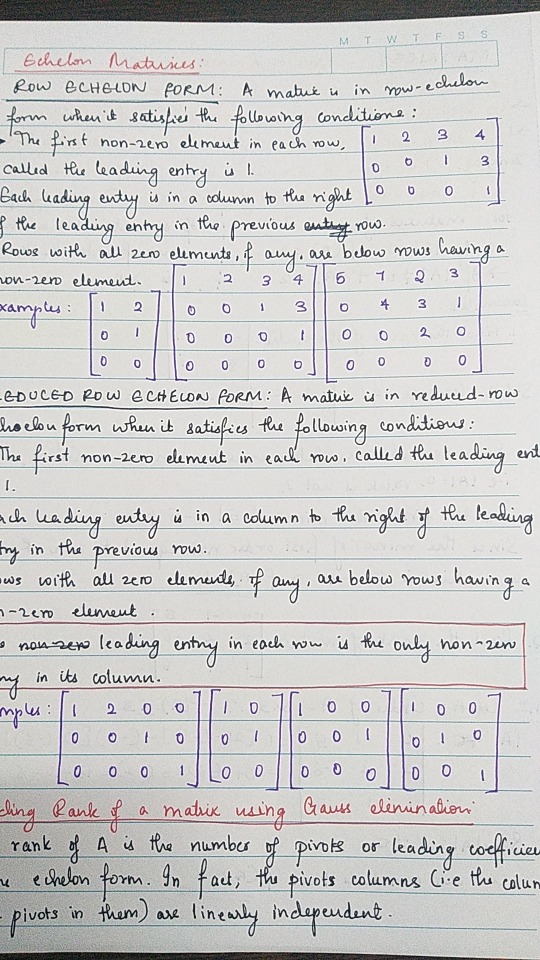 M T W T F S S
Echelon Matrices:
ROW ECHELON FORM: A matrix is in row-echelon
form when it satisfies the following conditions:
The first non-zero element in each row,
called the leading entry is 1.
1 2 3 4
0 0 1 3
0 0 0 1
Each leading entry is in a column to the right
f the leading entry in the previous entry row.
Rows with all zero elements, if any, are below rows having a
non-zero element.
xamples:
1 2
0 1
0 0
1 2 3 4
0 0 1 3
0 0 0 1
0 0 0 0
5 7 2 3
0 4 3 1
0 0 2 0
0 0 0 0
EDUCED ROW ECHELON FORM: A matrix is in reduced-row
form when it satisfies the following conditions:
The first non-zero element in each row, called the leading ent
1.
ach leading entry is in a column to the right of the leading
try in the previous row.
ws with all zero elements, if any, are below rows having a
n-zero element.
non-zero leading entry in each row is the only non-zero
ry in its column.
mples:
1 2 0 0
0 0 1 0
0 0 0 1
1 0
0 1
0 0
1 0 0
0 0 1
0 0 0
1 0 0
0 1 0
0 0 1
ding Rank of a matrix using Gauss elimination:
rank of A is the number of pivots or leading coefficien
echelon form. In fact, the pivots columns (i.e the colum
pivots in them) are linearly independent.